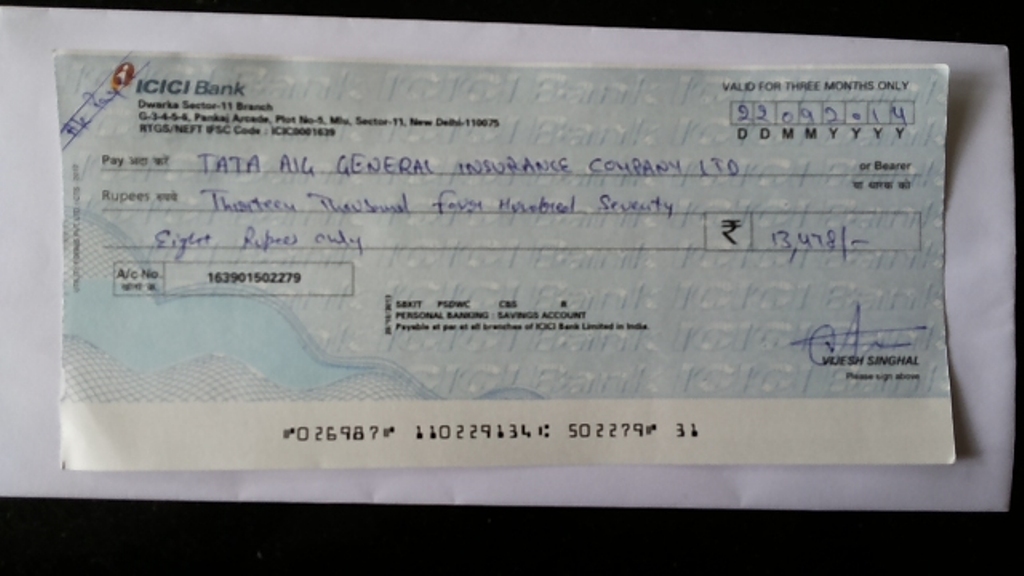 A/c Payee
ICICI Bank
Dwarka Sector-11 Branch
G-3-4-5-6, Pankaj Arcade, Plot No-5, Mlu, Sector-11, New Delhi-110075
RTGS/NEFT IFSC Code : ICIC0001639
VALID FOR THREE MONTHS ONLY
22092014
D D M M Y Y Y Y
Pay अदा करें TATA AIG GENERAL INSURANCE COMPANY LTD or Bearer
या धारक को
Rupees रुपये Thirteen Thousand Four Hundred Seventy
Eight Rupees only ₹ 13,478/-
A/c No. 163901502279
SBKIT PSDWC CBS R
PERSONAL BANKING : SAVINGS ACCOUNT
Payable at par at all branches of ICICI Bank Limited in India
VIJESH SINGHAL
Please sign above
⑈026987⑈ 110229134⑆ 502279⑈ 31